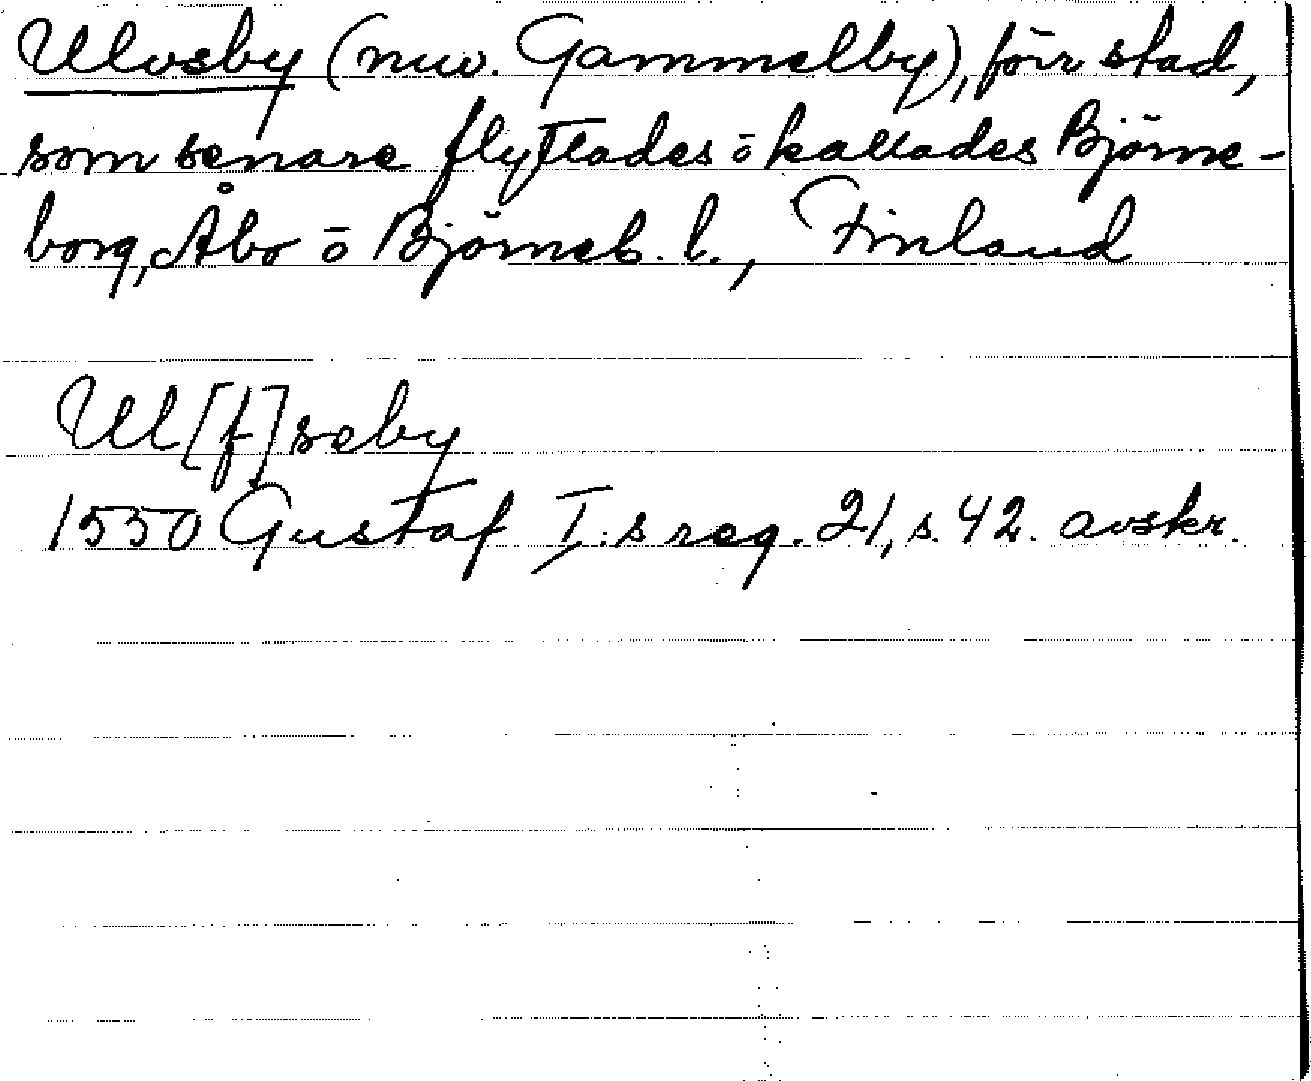 Ulvsby (nuv. Gammelby), förr stad,
som senare flyttades ō kallades Björne-
borg, Åbo ō Björneb. l., Finland
Ul[f]seby
1550 Gustaf I:s reg. 21, s. 42. avskr.